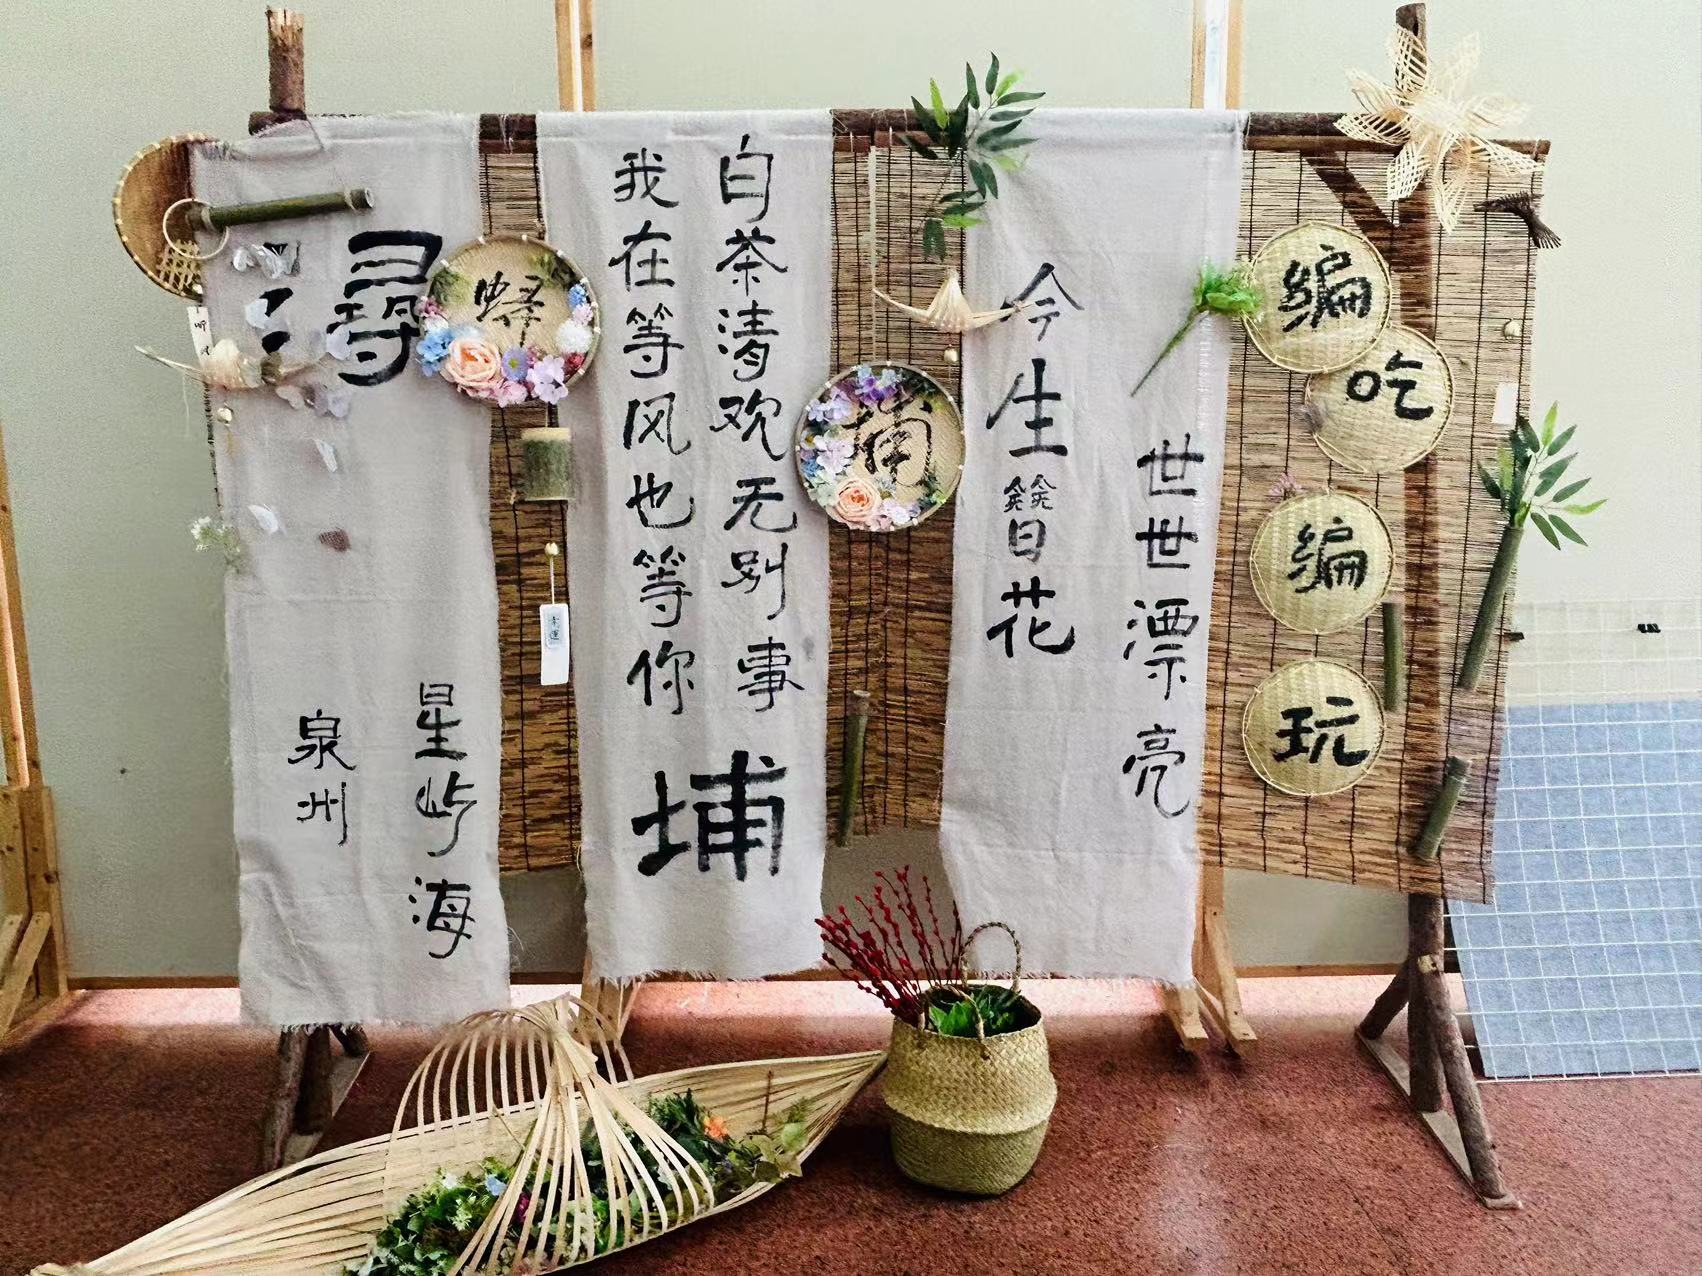 尋
星屿海
泉州
幸運
白茶清欢无别事
我在等风也等你
埔
今生簪花
世世漂亮
编
吃
编
玩